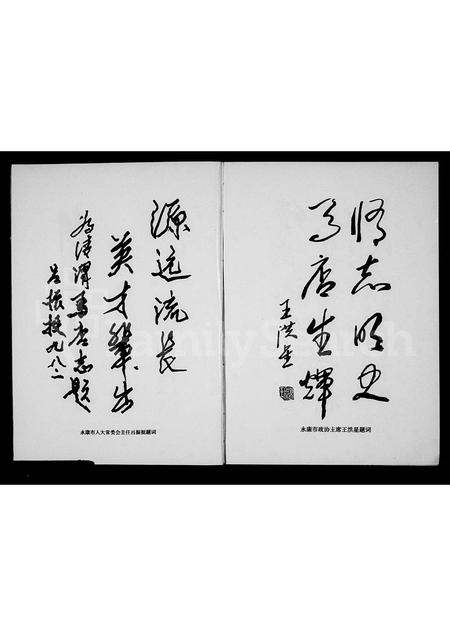 修志明史
马店生辉
王洪星
永康市政协主席王洪星题词
源远流长
英才辈出
为清渭马店志题
吕振挺九八.二
永康市人大常委会主任吕振挺题词
FamilySearch